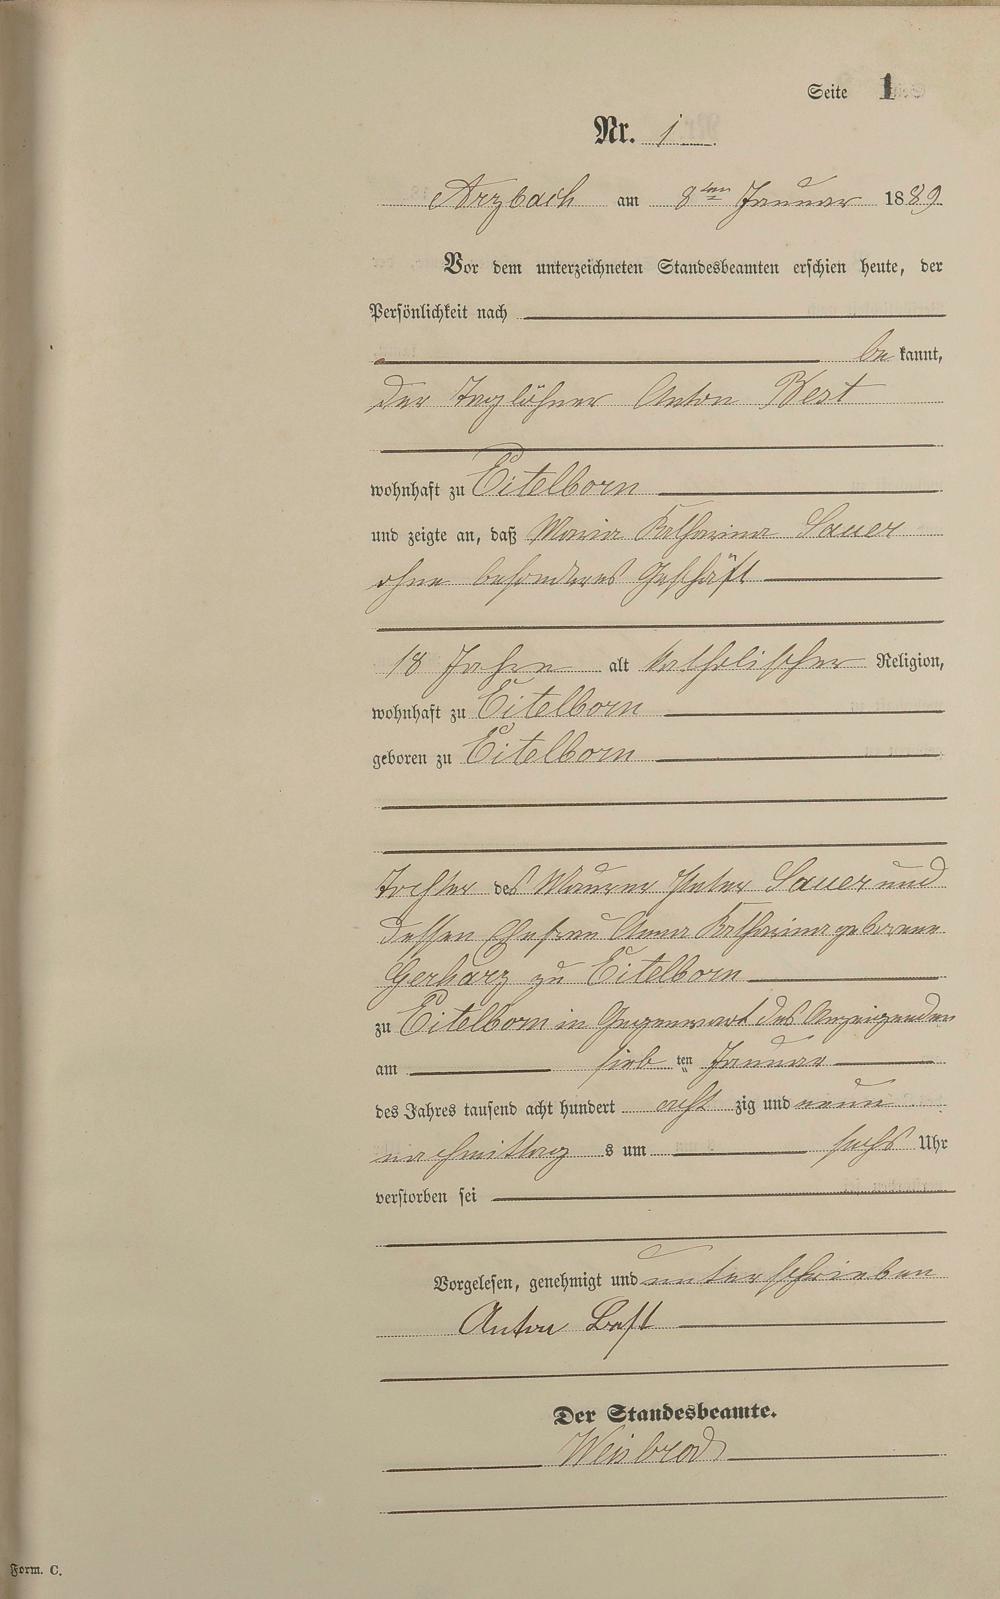 Seite 1
Nr. 1
Arzbach am 8ten Januar 1889.
Vor dem unterzeichneten Standesbeamten erschien heute, der
Persönlichkeit nach
be kannt,
der Taglöhner Anton Best
wohnhaft zu Eitelborn
und zeigte an, daß Maria Katharina Sauer
ohne besonderes Geschäft
18 Jahre alt katholischer Religion,
wohnhaft zu Eitelborn
geboren zu Eitelborn
Tochter des Maurer Peter Sauer und
dessen Ehefrau Anna Katharina geborene
Gerharz zu Eitelborn
zu Eitelborn in Gegenwart des Anzeigenden
am sieb ten Januar
des Jahres tausend acht hundert acht zig und neun
nachmittag s um sechs Uhr
verstorben sei
Vorgelesen, genehmigt und unterschrieben
Anton Best
Der Standesbeamte.
Weisbrod
Form. C.